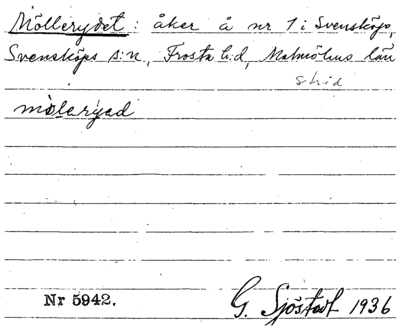 Möllerydet: åker å nr 1 i Svensköp,
Svensköps s:n, Frosta h:d, Malmöhus län
Skåd
möleryed
Nr 5942.
G. Sjöstedt 1936